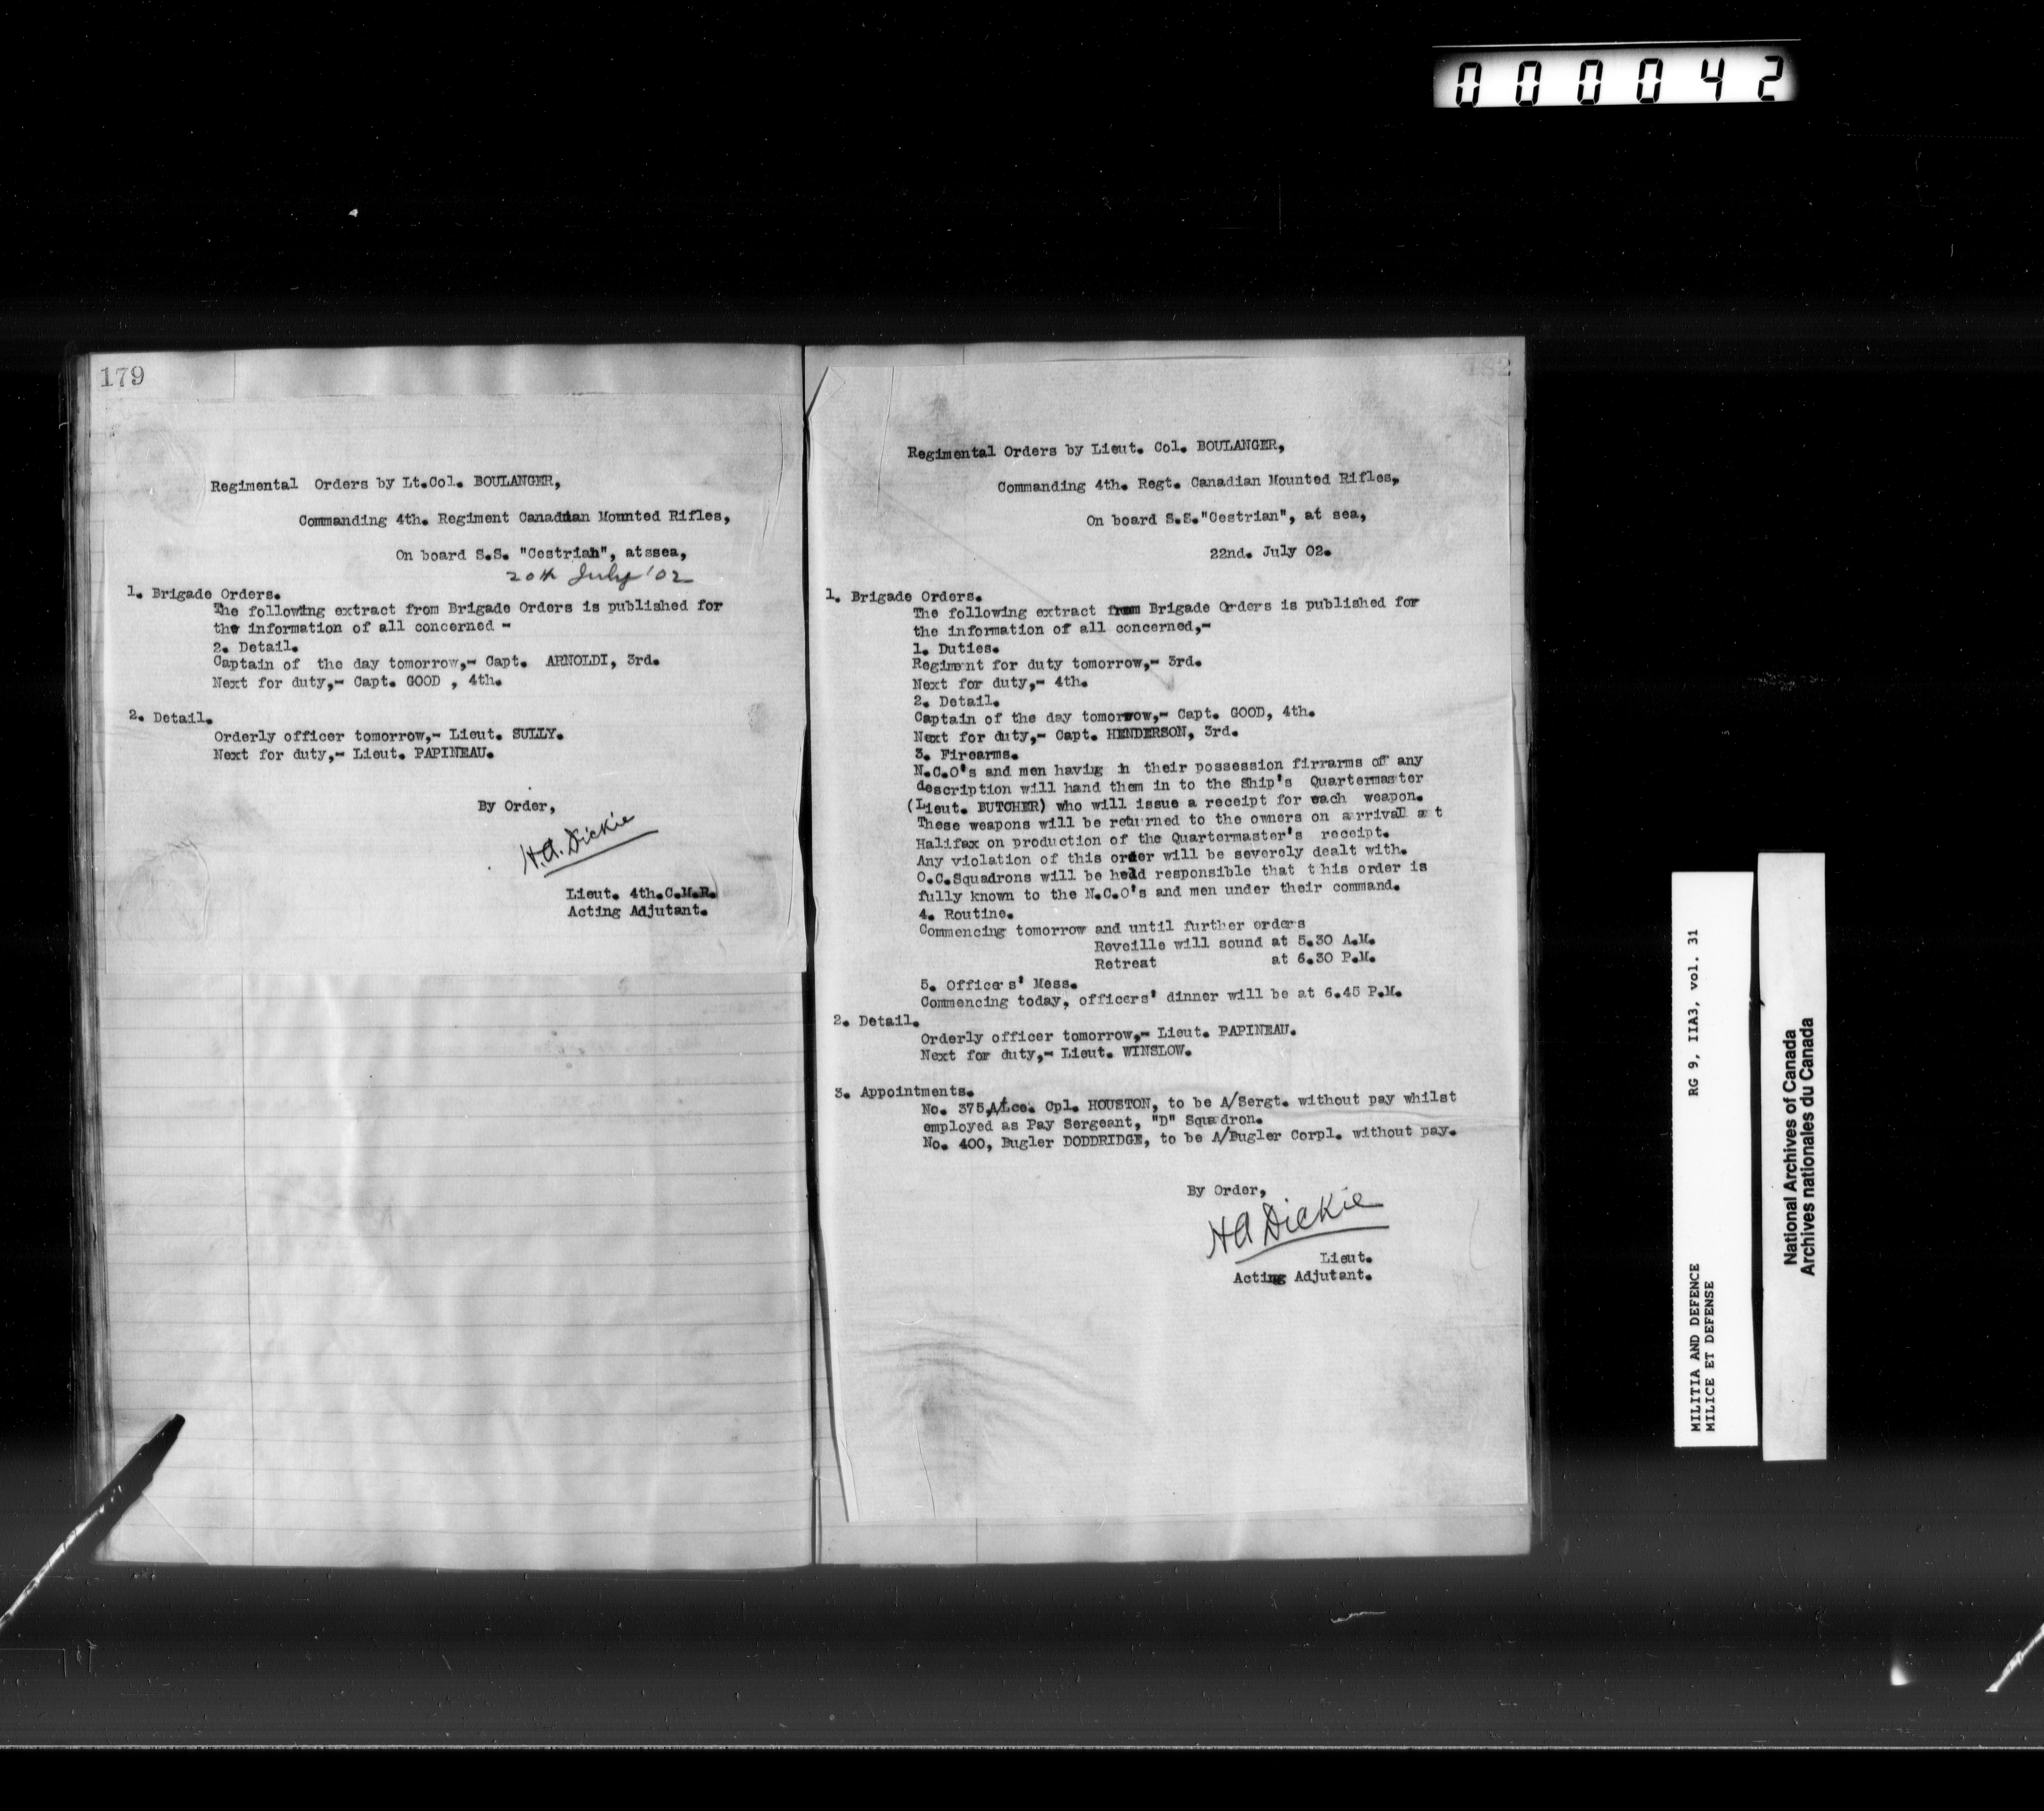 000042
179
Regimental Orders by Lt.Col. BOULANGER,
Commanding 4th. Regiment Canadian Mounted Rifles,
On board S.S. "Cestrian", atssea,
20th July '02
1. Brigade Orders.
The following extract from Brigade Orders is published for
the information of all concerned -
2. Detail.
Captain of the day tomorrow,- Capt. ARNOLDI, 3rd.
Next for duty,- Capt. GOOD , 4th.
2. Detail.
Orderly officer tomorrow,- Lieut. SULLY.
Next for duty,- Lieut. PAPINEAU.
By Order,
H.A. Dickie
Lieut. 4th.C.M.R.
Acting Adjutant.
182
Regimental Orders by Lieut. Col. BOULANGER,
Commanding 4th. Regt. Canadian Mounted Rifles,
On board S.S."Cestrian", at sea,
22nd. July 02.
1. Brigade Orders.
The following extract from Brigade Orders is published for
the information of all concerned,-
1. Duties.
Regiment for duty tomorrow,- 3rd.
Next for duty,- 4th.
2. Detail.
Captain of the day tomorrow,- Capt. GOOD, 4th.
Next for duty,- Capt. HENDERSON, 3rd.
3. Firearms.
N.C.O's and men having in their possession firrarms of any
description will hand them in to the Ship's Quartermaster
(Lieut. BUTCHER) who will issue a receipt for each weapon.
These weapons will be returned to the owners on arrival at
Halifax on production of the Quartermaster's receipt.
Any violation of this order will be severely dealt with.
O.C.Squadrons will be held responsible that this order is
fully known to the N.C.O's and men under their command.
4. Routine.
Commencing tomorrow and until further orders
Reveille will sound at 5.30 A.M.
Retreat at 6.30 P.M.
5. Officers' Mess.
Commencing today, officers' dinner will be at 6.45 P.M.
2. Detail.
Orderly officer tomorrow,- Lieut. PAPINEAU.
Next for duty,- Lieut. WINSLOW.
3. Appointments.
No. 375,A/Lce. Cpl. HOUSTON, to be A/Sergt. without pay whilst
employed as Pay Sergeant, "D" Squadron.
No. 400, Bugler DODDRIDGE, to be A/Bugler Corpl. without pay.
By Order,
HA Dickie
Lieut.
Acting Adjutant.
MILITIA AND DEFENCE RG 9, IIA3, vol. 31
MILICE ET DEFENSE
National Archives of Canada
Archives nationales du Canada